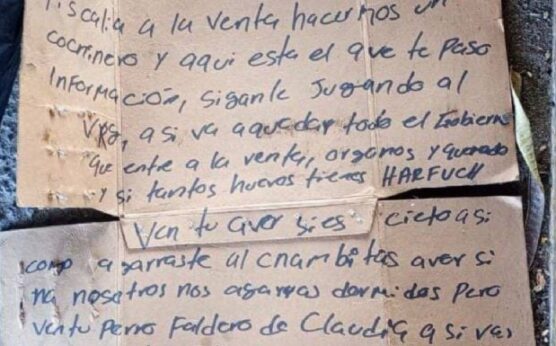 Fiscalia a la venta hacernos un
cocinero y aqui esta el que te Paso
Información, siganle Jugando al
VRG, a si va aquedar todo el Gobierno
que entre a la venta, organos y quemado
y si tantos huevos tienes HARFUCH
Ven tu aver si es cieto asi
como agarraste al cnambitas aver si
na nosotros nos agarras dormidos Pero
ventu Perro Faldero de Claudia a si vas